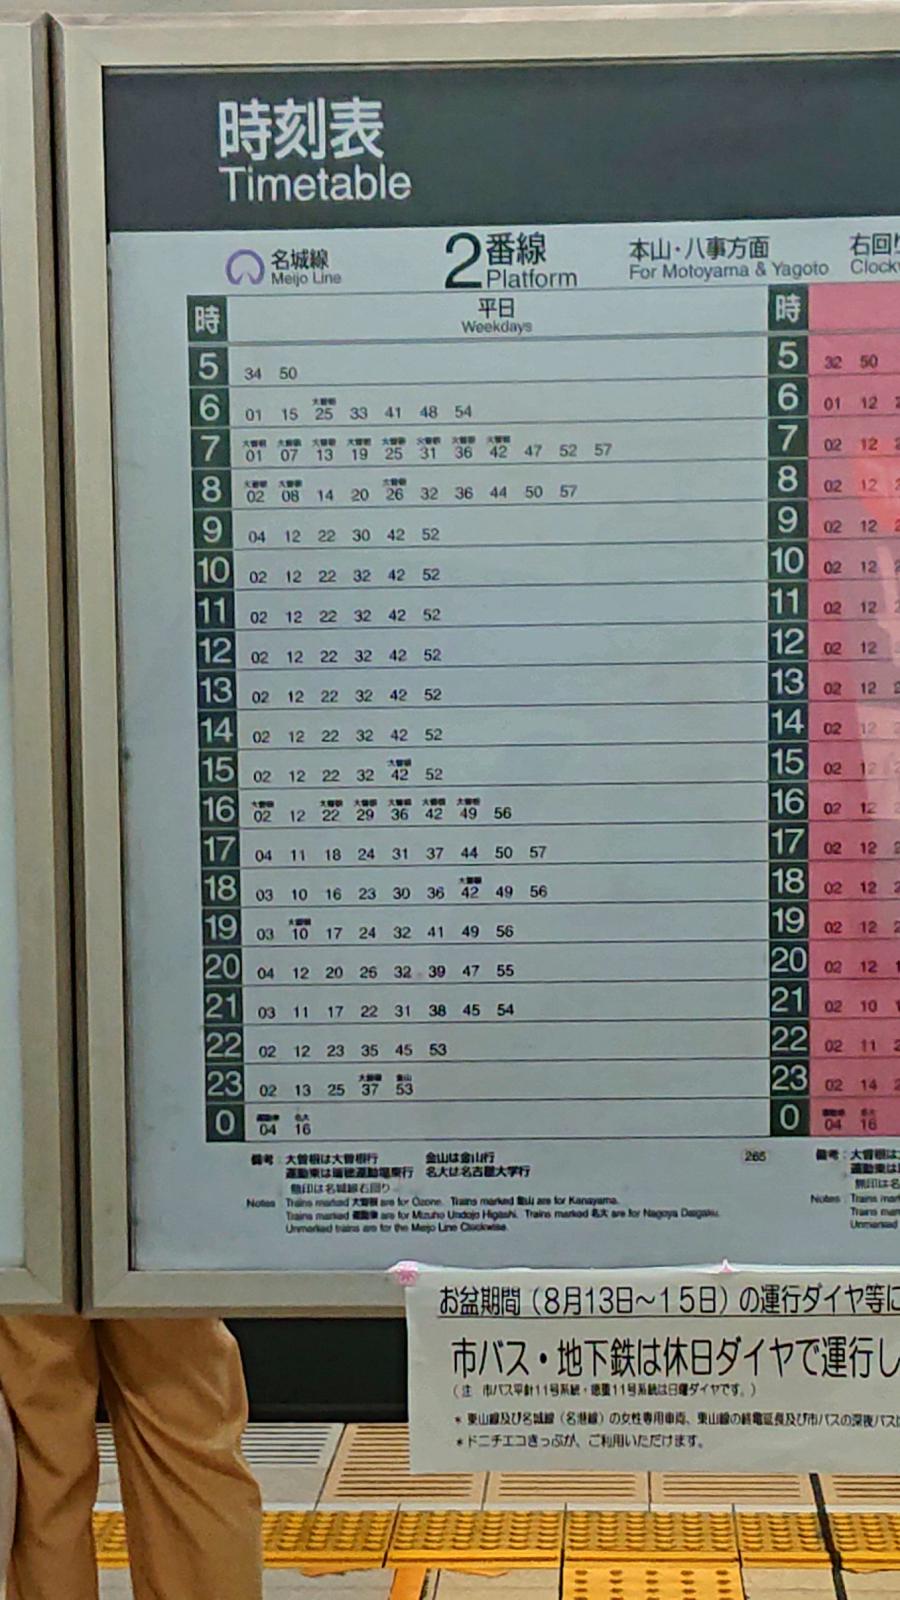 時刻表
Timetable
名城線
Meijo Line
2 番線
Platform
本山・八事方面
For Motoyama & Yagoto
右回り
Clockw
時 平日 時
Weekdays
5 34 50 5 32 50
大曽根
6 01 15 25 33 41 48 54 6 01 12 2
大曽根 大曽根 大曽根 大曽根 大曽根 大曽根 大曽根 大曽根
7 01 07 13 19 25 31 36 42 47 52 57 7 02 12 2
大曽根 大曽根 大曽根
8 02 08 14 20 26 32 36 44 50 57 8 02 12 2
9 04 12 22 30 42 52 9 02 12 2
10 02 12 22 32 42 52 10 02 12 2
11 02 12 22 32 42 52 11 02 12 2
12 02 12 22 32 42 52 12 02 12
13 02 12 22 32 42 52 13 02 12 2
14 02 12 22 32 42 52 14 02 12
大曽根
15 02 12 22 32 42 52 15 02 12 2
大曽根 大曽根 大曽根 大曽根 大曽根 大曽根
16 02 12 22 29 36 42 49 56 16 02 12
17 04 11 18 24 31 37 44 50 57 17 02 12 2
大曽根
18 03 10 16 23 30 36 42 49 56 18 02 12 2
大曽根
19 03 10 17 24 32 41 49 56 19 02 12 2
20 04 12 20 26 32 39 47 55 20 02 12 1
21 03 11 17 22 31 38 45 54 21 02 10 1
22 02 12 23 35 45 53 22 02 11 2
大曽根 金山
23 02 13 25 37 53 23 02 14 2
運動東 名大 運動東 名大
0 04 16 0 04 16
備考：大曽根は大曽根行 金山は金山行 265 備考：大曽根は
運動東は瑞穂運動場東行 名大は名古屋大学行 運動東は
無印は名城線右回り 無印は名
Notes Trains marked 大曽根 are for Ozone. Trains marked 金山 are for Kanayama. Notes Trains mar
Trains marked 運動東 are for Mizuho Undojo Higashi. Trains marked 名大 are for Nagoya Daigaku. Trains mar
Unmarked trains are for the Meijo Line Clockwise. Unmarked
お盆期間（8月13日～15日）の運行ダイヤ等に
市バス・地下鉄は休日ダイヤで運行し
（注 市バス平針11号系統・徳重11号系統は日曜ダイヤです。）
＊東山線及び名城線（名港線）の女性専用車両、東山線の終電延長及び市バスの深夜バスは
＊ドニチエコきっぷが、ご利用いただけます。